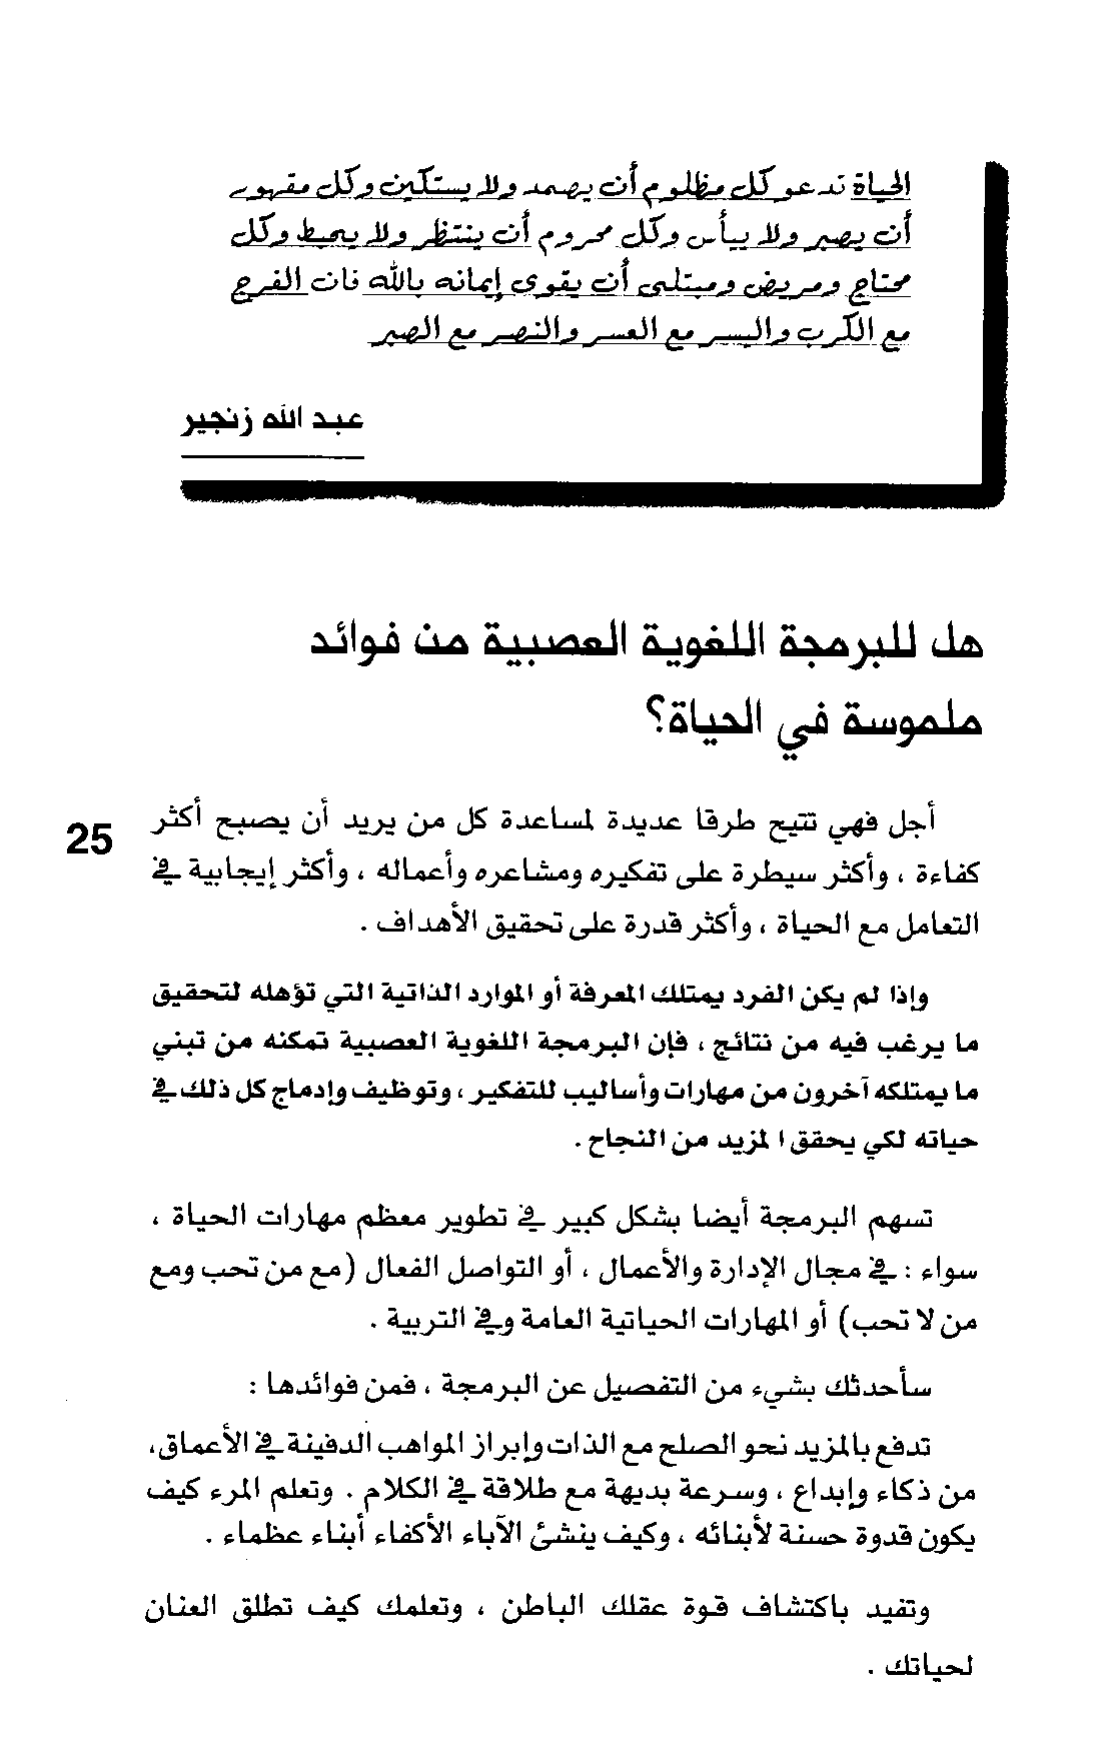 الحياة تدعو كل مظلوم أن يصمد ولا يستكين وكل مقهور
أن يصبر ولا ييأس وكل محروم أن ينتظر ولا يحبط وكل
محتاج ومريض ومبتلى أن يقوى إيمانه بالله فان الفرج
مع الكرب واليسر مع العسر والنصر مع الصبر
عبد الله زنجير
هل للبرمجة اللغوية العصبية من فوائد
ملموسة في الحياة؟
أجل فهي تتيح طرقا عديدة لمساعدة كل من يريد أن يصبح أكثر
25
كفاءة ، وأكثر سيطرة على تفكيره ومشاعره وأعماله ، وأكثر إيجابية في
التعامل مع الحياة ، وأكثر قدرة على تحقيق الأهداف .
وإذا لم يكن الفرد يمتلك المعرفة أو الموارد الذاتية التي تؤهله لتحقيق
ما يرغب فيه من نتائج ، فإن البرمجة اللغوية العصبية تمكنه من تبني
ما يمتلكه آخرون من مهارات وأساليب للتفكير ، وتوظيف وإدماج كل ذلك في
حياته لكي يحقق المزيد من النجاح .
تسهم البرمجة أيضا بشكل كبير في تطوير معظم مهارات الحياة ،
سواء : في مجال الإدارة والأعمال ، أو التواصل الفعال (مع من تحب ومع
من لا تحب) أو المهارات الحياتية العامة وفي التربية .
سأحدثك بشيء من التفصيل عن البرمجة ، فمن فوائدها :
تدفع بالمزيد نحو الصلح مع الذات وإبراز المواهب الدفينة في الأعماق،
من ذكاء وإبداع ، وسرعة بديهة مع طلاقة في الكلام . وتعلم المرء كيف
يكون قدوة حسنة لأبنائه ، وكيف ينشئ الآباء الأكفاء أبناء عظماء .
وتفيد باكتشاف قوة عقلك الباطن ، وتعلمك كيف تطلق العنان
لحياتك .